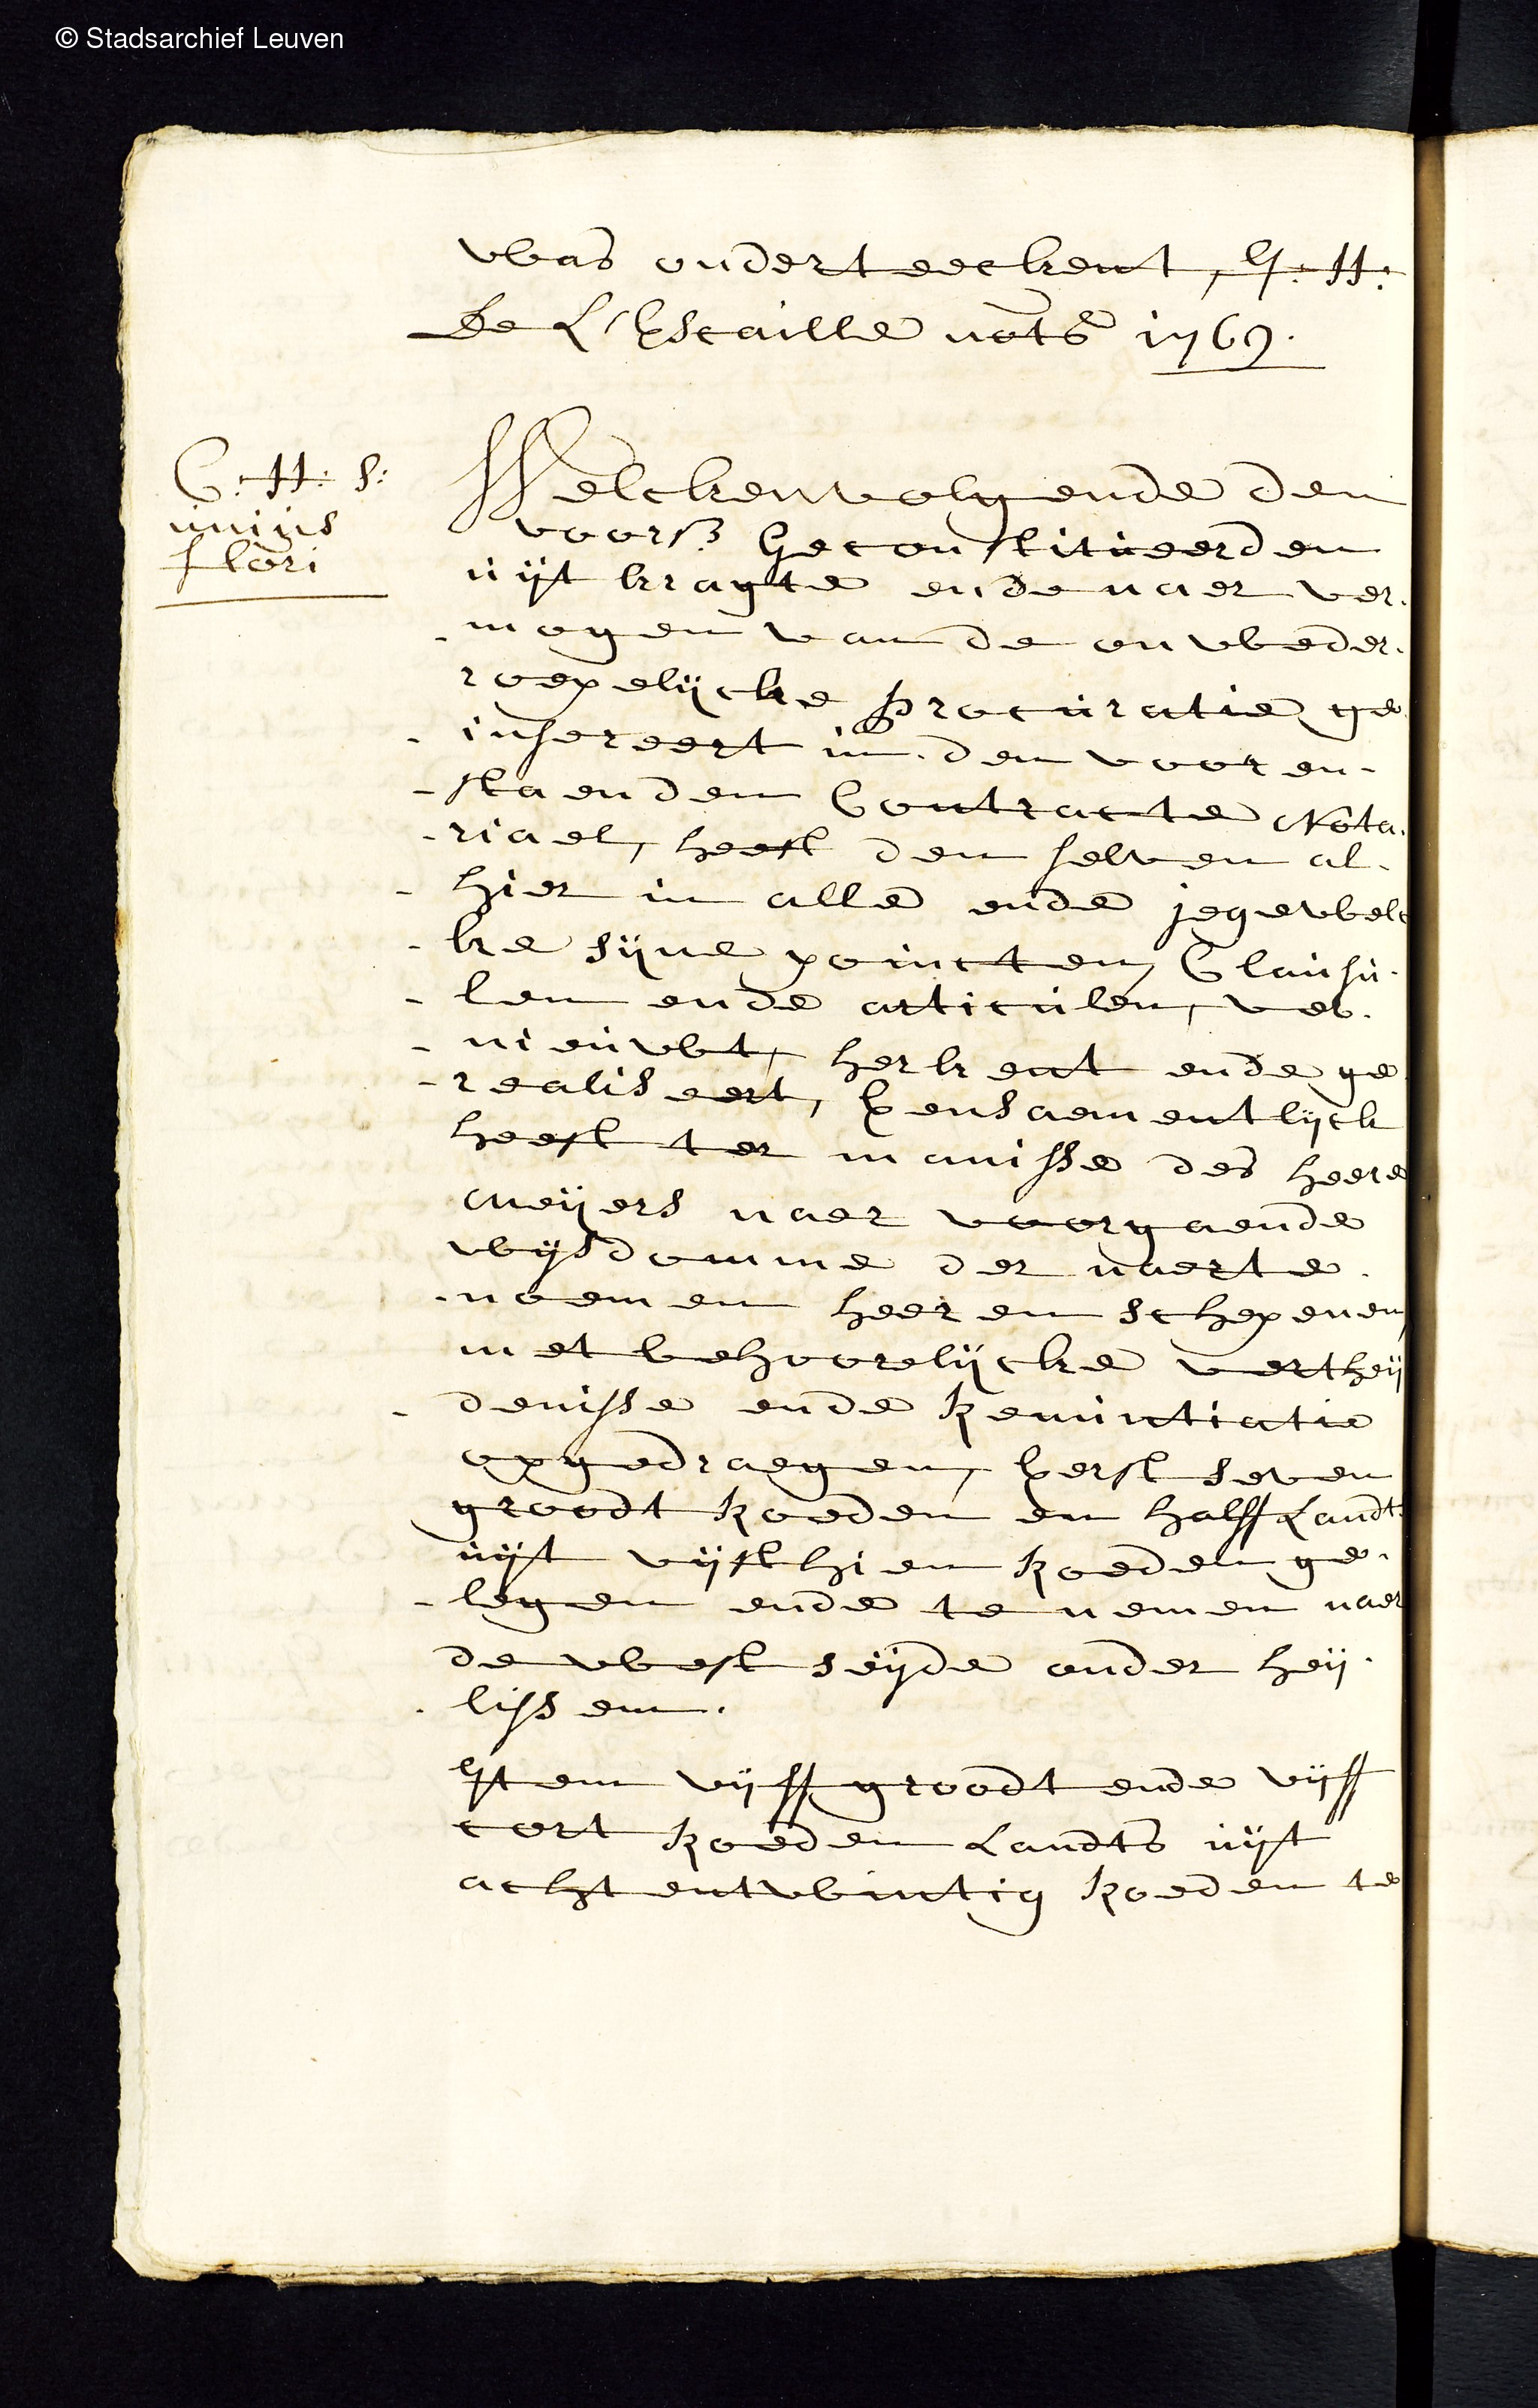 © Stadsarchief Leuven
was onderteeckent, J: H:
De L'Escaille nots 1769.
C: H: s:
unius
flori
Welckenvolgende den
voors. Geconstitueerden
uijt kragte ende naer ver-
-mogen van de onweder-
roepelijcke procuratie ge
-insereert in den vooren-
-staenden Contracte Nota-
-riael, heeft den selven al-
-hier in alle ende jegewelc
-ke sijne poincten, Clausu-
-len ende articulen, ver-
-nieuwt, herkent ende ge
-realiseert, Eensaementlijck
heeft ter manisse des heere
meijers naer voorgaende
wijsdomme der naerte-
-noemen heeren schepenen,
met behoorelijcke vertheij
-denisse ende Renuntiatie
opgedraegen, Eerst seven
groodt Roeden en half Landts
uijt vijfthien Roeden ge-
-legen ende te nemen naer
de west seijde onder heij-
-lissem.
Item vijff groodt ende vijff
cort Roeden Landts uijt
achtentwintig Roeden te